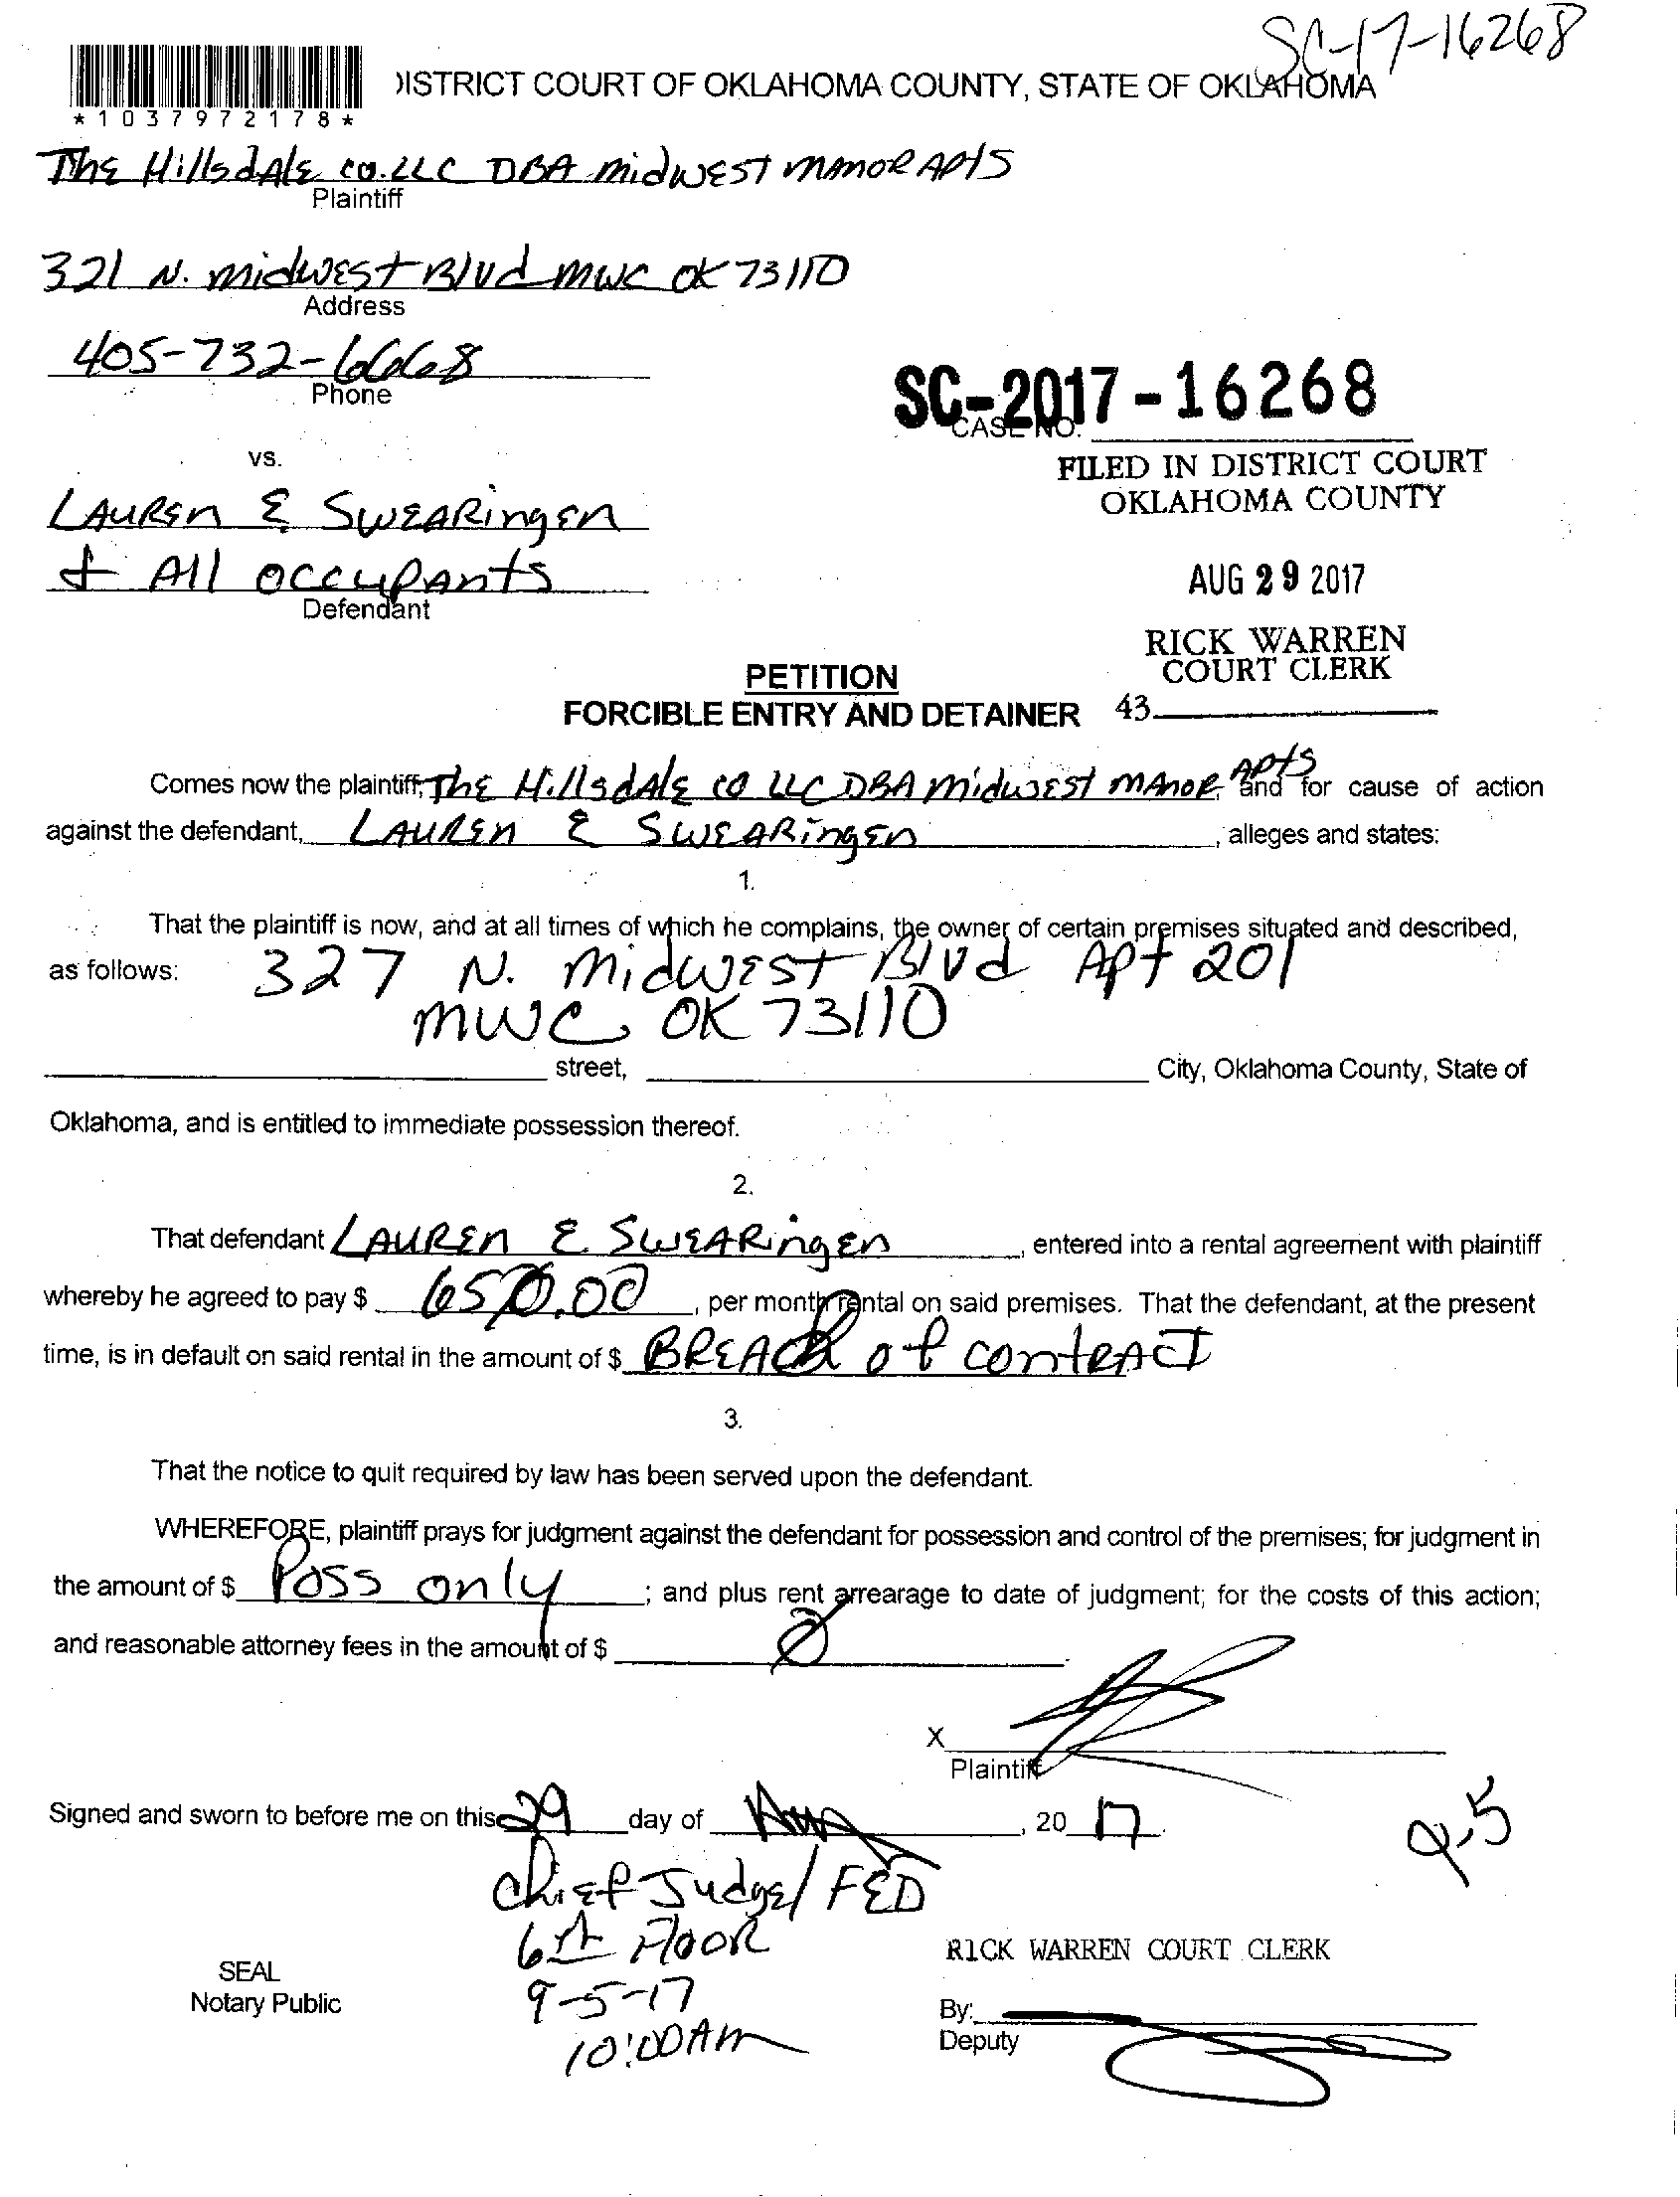 SC-17-16268
DISTRICT COURT OF OKLAHOMA COUNTY, STATE OF OKLAHOMA
*1037972178*
The Hillsdale co. LLC DBA midwest manor Apts
Plaintiff
321 N. midwest Blvd mwc OK 73110
Address
405-732-6668
Phone
SC-2017-16268
CASE NO.
vs.
FILED IN DISTRICT COURT
OKLAHOMA COUNTY
Lauren E Swearingen
& All occupants
Defendant
AUG 29 2017
RICK WARREN
COURT CLERK
43
PETITION
FORCIBLE ENTRY AND DETAINER
Comes now the plaintiff, The Hillsdale co LLC DBA midwest manor Apts and for cause of action
against the defendant, Lauren E Swearingen, alleges and states:
1.
That the plaintiff is now, and at all times of which he complains, the owner of certain premises situated and described,
as follows: 327 N. midwest Blvd Apt 201
mwc OK 73110
street, City, Oklahoma County, State of
Oklahoma, and is entitled to immediate possession thereof.
2.
That defendant Lauren E. Swearingen, entered into a rental agreement with plaintiff
whereby he agreed to pay $ 650.00, per month rental on said premises. That the defendant, at the present
time, is in default on said rental in the amount of $ Breach of contract
3.
That the notice to quit required by law has been served upon the defendant.
WHEREFORE, plaintiff prays for judgment against the defendant for possession and control of the premises; for judgment in
the amount of $ Poss only; and plus rent arrearage to date of judgment; for the costs of this action;
and reasonable attorney fees in the amount of $ 0
X
Plaintiff
Signed and sworn to before me on this 29 day of Aug, 20 17
9-5
Chief Judge/ FED
6th Floor
9-5-17
10:00 Am
SEAL
Notary Public
RICK WARREN COURT CLERK
By:
Deputy